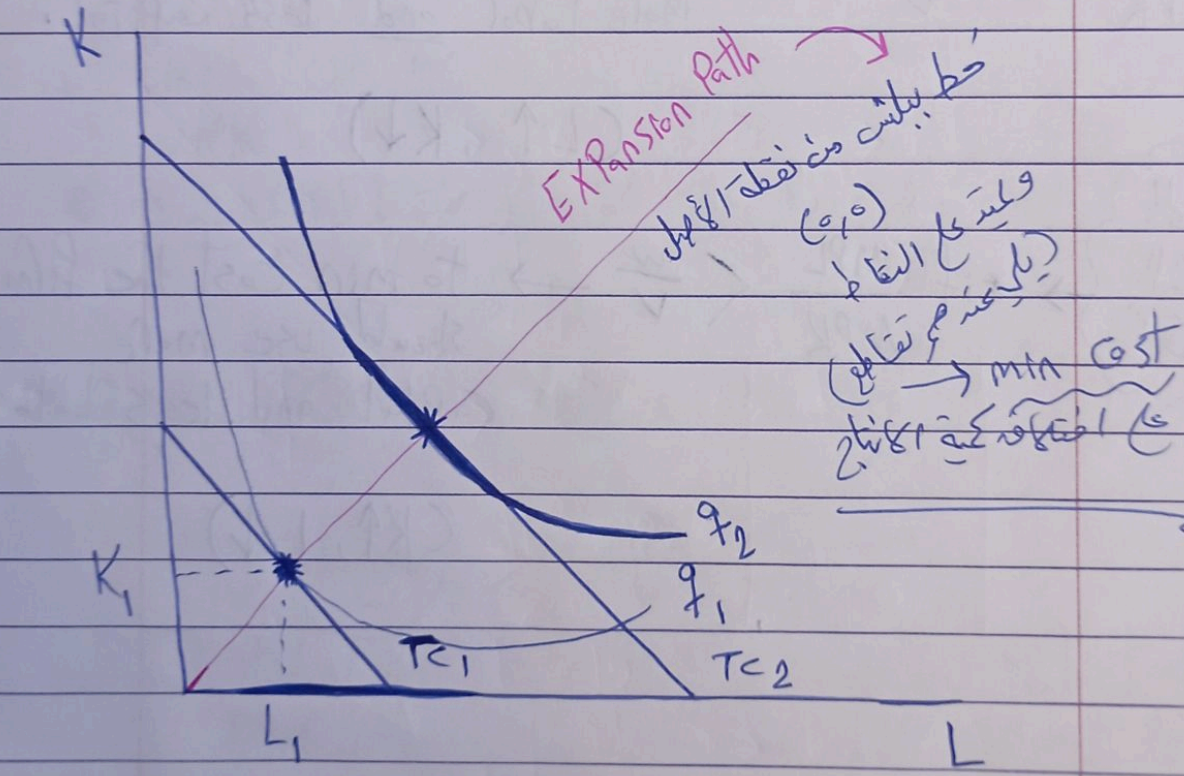 K
EXPansion Path
خط ببلش من نقطة الأصل
(0,0)
وبمتد ع النقاط
(يلي عندهم تقاطع)
→ min Cost
ع اختلاف كمية الانتاج
q2
q1
K1
TC1
TC2
L1
L